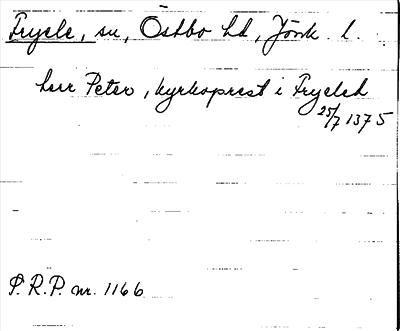 Fryele, sn, Östbo hd, Jönk. l.
herr Peter, kyrkoprest i Fryeled
25/7 1375
P.R.P. nr. 1166